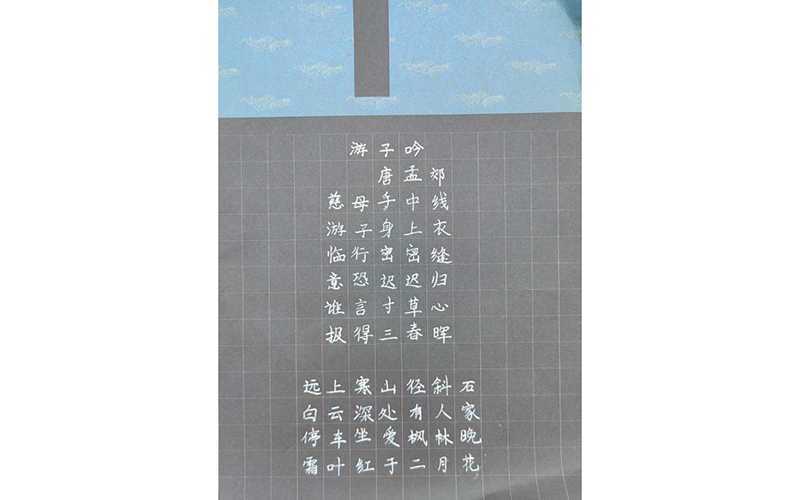 游子吟
唐孟郊
慈母手中线
游子身上衣
临行密密缝
意恐迟迟归
谁言寸草心
报得三春晖
远上寒山径斜石
白云深处有人家
停车坐爱枫林晚
霜叶红于二月花